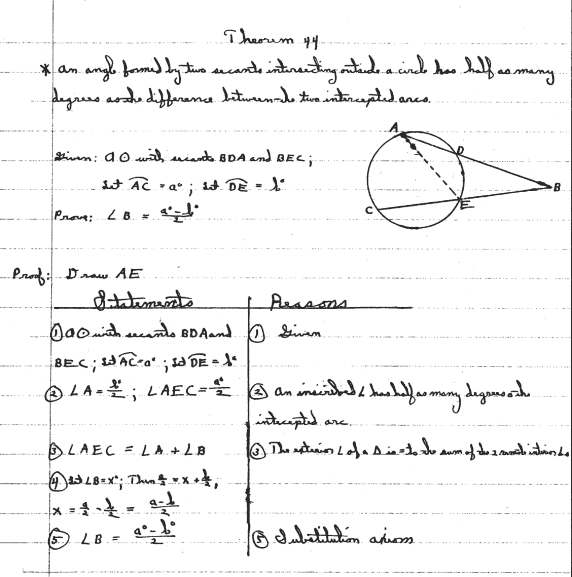 Theorem 44
* An angle formed by two secants intersecting outside a circle has half as many
degrees as the difference between the two intercepted arcs.
Given: a ⊙ with secants BDA and BEC;
Let AC = a°; Let DE = b°
Prove: ∠B = a°-b°/2
A
D
B
C
E
Proof: Draw AE
Statements Reasons
① a ⊙ with secants BDA and ① Given
BEC; Let AC=a°; Let DE = b°
② ∠A = b°/2; ∠AEC = a°/2 ② An inscribed ∠ has half as many degrees as the
intercepted arc.
③ ∠AEC = ∠A + ∠B ③ The exterior ∠ of a Δ is = to the sum of the 2 remote interior ∠s
④ Let ∠B = x°; Then a/2 = x + b/2,
x = a/2 - b/2 = a-b/2
⑤ ∠B = a°-b°/2 ⑤ Substitution axiom